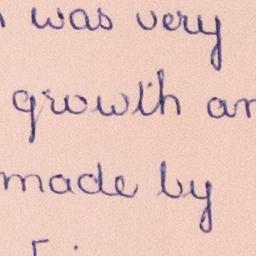 was very
growth an
made by